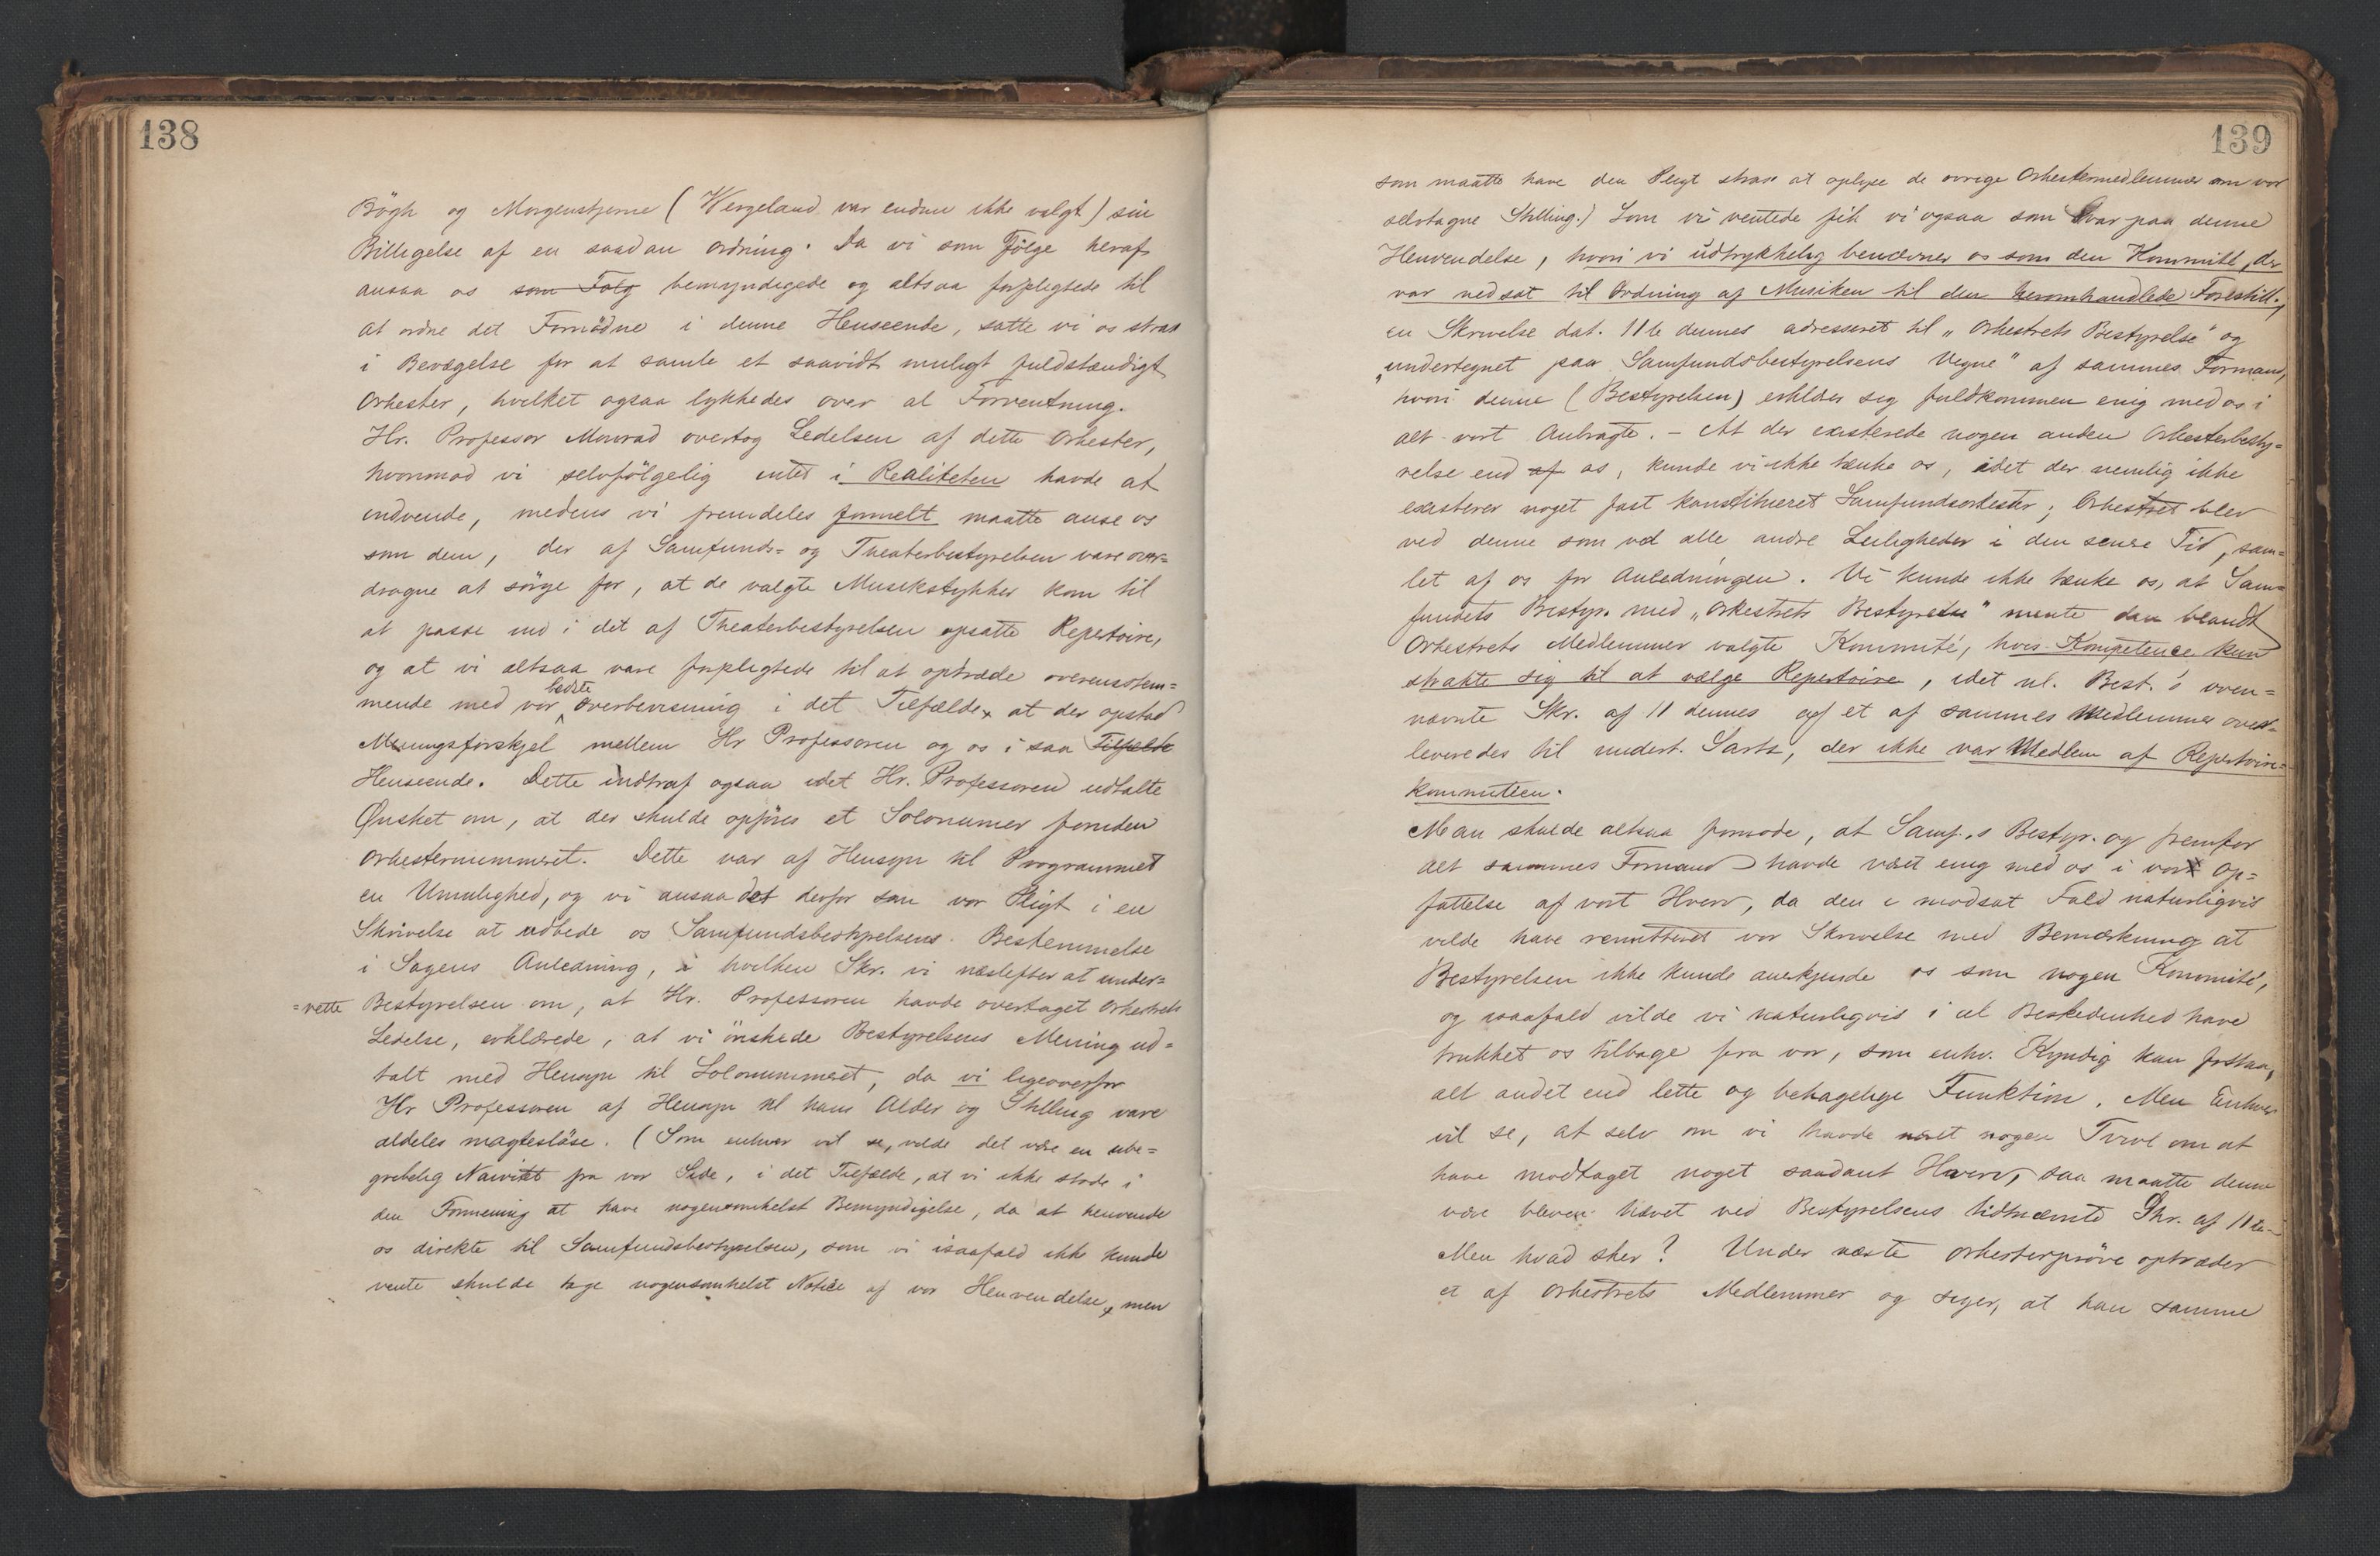 138
Bögh og Morgenstjerne (Wergeland var endnu ikke valgt) sin
Billigelse af en saadan Ordning. Da vi som Fölge heraf
ansaa os som Følg bemyndigede og altsaa forpligtede til
at ordne det Fornödne i denne Henseende, satte vi os strax
i Bevægelse for at samle et saavidt muligt fuldstændigt
Orkester, hvilket ogsaa lykkedes over al Forventning.
Hr. Professor Monrad overtog Ledelsen af dette Orkester,
hvorimod vi selvfölgelig intet i Realiteten havde at
indvende, medens vi fremdeles formelt maatte anse os
som dem, der af Samfunds= og Theaterbestyrelsen vare over=
dragne at sörge for, at de valgte Musikstykker kom til
at passe ind i det af Theaterbestyrelsen opsatte Repertoire,
og at vi altsaa vare forpligtede til at optræde overensstem=
mende med vor bedste Overbevisning i det Tilfælde, at der opstod
Meningsforskjel mellem Hr Professoren og os i saa Tilfælde
Henseende. Dette indtraf ogsaa idet Hr. Professoren udtalte
Ønsket om, at der skulde opföres et Solonumer foruden
Orkesternummeret. Dette var af Hensyn til Programmet
en Umulighed, og vi ansaa det derfor som vor Pligt i en
Skrivelse at udbede os Samfundsbestyrelsens Bestemmelse
i Sagens Anledning, i hvilken Skr. vi næstefter at under=
=rette Bestyrelsen om, at Hr. Professoren havde overtaget Orkestrets
Ledelse, erklærede, at vi önskede Bestyrelsens Mening ud=
talt med Hensyn til Solonummeret, da vi ligeoverfor
Hr Professoren af Hensyn til hans Alder og Stilling vare
aldeles magteslöse. (Som enhver vil se, vilde det være en ube=
gribelig Naivitet fra vor Side, i det Tilfælde, at vi ikke stode i
den Formening at have nogensomhelst Bemyndigelse, da at henvende
os direkte til Samfundsbestyrelsen, som vi isaafald ikke kunde
vente skulde tage nogensomhelst Notice af vor Henvendelse, men
139
som maatte have den Pligt strax at oplyse de øvrige Orkestermedlemmer om vor
selvtagne Stilling.) Som vi ventede fik vi ogsaa som Svar paa denne
Henvendelse, hvori vi udtrykkelig benævner os som den Kommitté, der
var nedsat til Ordning af Musiken til den heromhandlede Forestill.,
en Skrivelse dat. 11te dennes adresseret til „Orkestrets Bestyrelse" og
„undertegnet paa Samfundsbestyrelsens Vegne" af sammes Formand,
hvori denne (Bestyrelsen) erklær sig fuldkommen enig med os i
alt vort Anbragte. – At der existerede nogen anden Orkesterbesty=
relse end af os, kunde vi ikke tænke os, idet der nemlig ikke
existerer noget fast konstitueret Samfundsorkester; Orkestret blev
ved denne som ved alle andre Leiligheder i den senere Tid, sam=
let af os for Anledningen. Vi kunde ikke tænke os, at Sam=
fundets Bestyr. med „Orkestrets Bestyrelse" mente den blandt
Orkestrets Medlemmer valgte Kommité, hvis Kompetence kun
strakte sig til at vælge Repertoire, idet nl. Best.'s oven=
nævnte Skr. af 11 dennes af et af sammes Medlemmer over=
leveredes til undert. Sartz, der ikke var Medlem af Repertoire=
kommiteen.
Man skulde altsaa formode, at Samf.s Bestyr. og fremfor
alt sammes Formand havde været enig med os i vor Op=
fattelse af vort Hverv, da den i modsat Fald naturligvis
vilde have remitteret vor Skrivelse med Bemærkning at
Bestyrelsen ikke kunde anerkjende os som nogen Kommité,
og isaafald vilde vi naturligvis i al Beskedenhed have
trukket os tilbage fra vor, som enhv. Kyndig kan forstaa,
alt andet end lette og behagelige Funktion. Men Enhver
vil se, at selv om vi havde næret nogen Tvivl om at
have modtaget noget saadant Hverv, saa maatte denne
være bleven hævet ved Bestyrelsens tidtnævnte Skr. af 11te.
Men hvad sker? Under næste Orkesterpröve optræder
et af Orkestrets Medlemmer og siger, at han samme